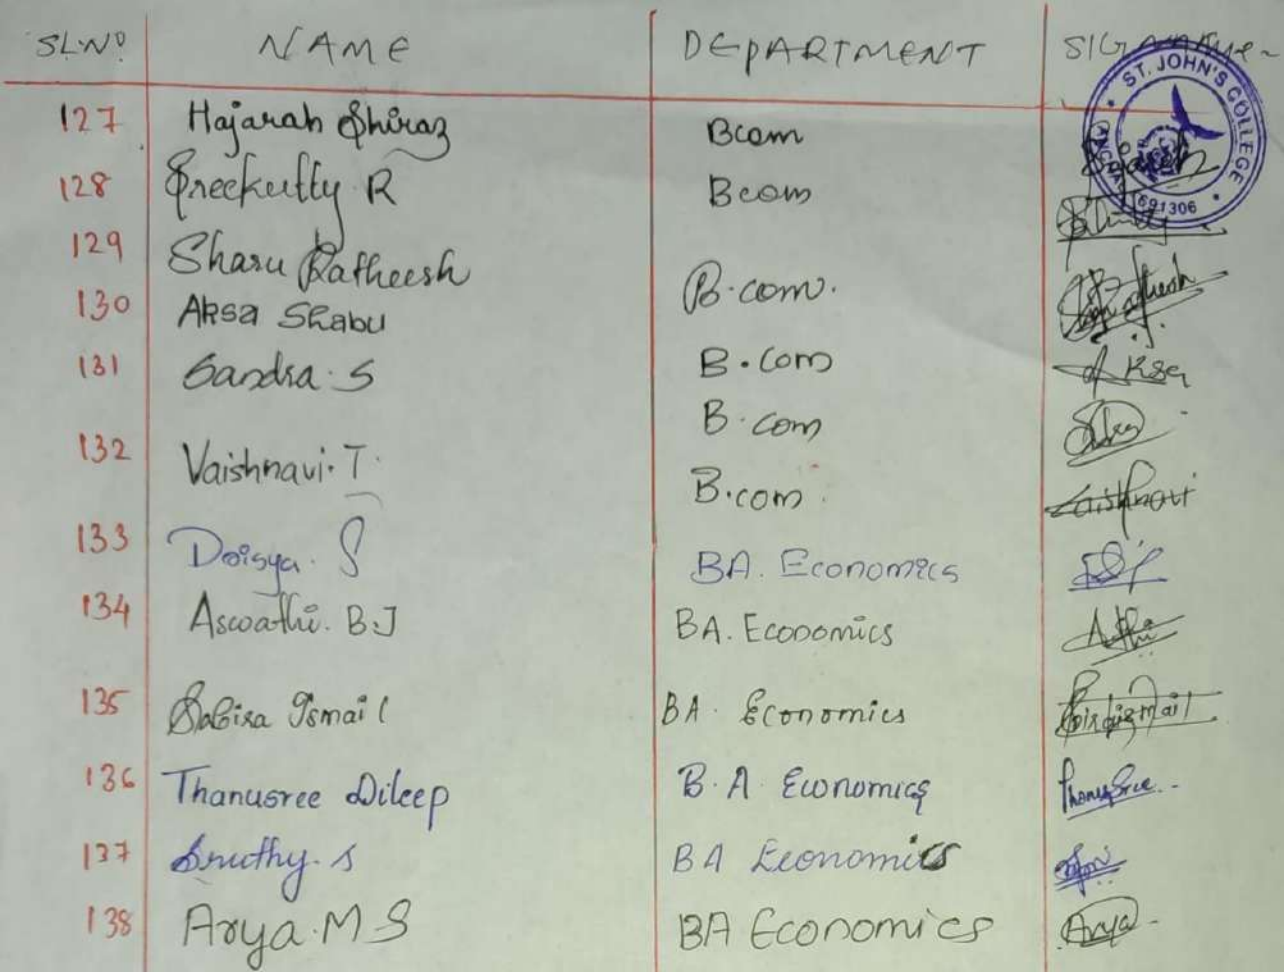 SL.NO NAME DEPARTMENT SIGNATURE
127 Hajarah Shiraz Bcom
128 Sreekutty R Bcom
129 Sharu Ratheesh B.com.
130 Aksa Shabu B.com
131 Sandra. S B.com Aksa
132 Vaishnavi. T. B.com Vaishnavi
133 Doisya. S BA. Economics
134 Aswathi. B.J BA. Economics
135 Sabira Ismail BA. Economics
136 Thanusree Dileep B.A. Economics Thanusree
137 Sruthy. S BA Economics
138 Arya. M S BA Economics Arya
ST. JOHN'S COLLEGE
691306